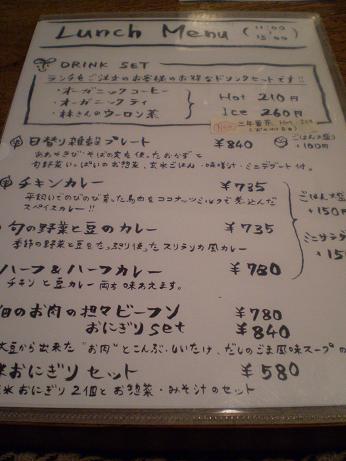 Lunch Menu (11:00 / 15:00)
DRINK SET
ランチをご注文のお客様のお得なドリンクセットです!!
・オーガニックコーヒー
・オーガニックティ
・林さんのウーロン茶
Hot 210円
Ice 260円
三年番茶
日替り雑穀プレート ¥840
ごはん大盛 +100円
旬野菜いっぱいのお惣菜、玄米ごはん・味噌汁・ミニデザート付。
チキンカレー ¥735
平飼いでのびのび育った鳥肉をココナッツミルクで煮込んだ
スパイスカレー!!
旬の野菜と豆のカレー ¥735
季節の野菜と豆をたっぷり使ったスリランカ風カレー
ごはん大盛
+150円
ミニサラダ
+15
ハーフ&ハーフカレー ¥780
チキンと豆カレー両方味わえます。
のお肉の担々ビーフン ¥780
おにぎりset ¥840
大豆から出来た"お肉"とこんぶ・しいたけ、だしのごま風味スープの
おにぎりセット ¥580
米おにぎり2個とお惣菜・みそ汁のセット